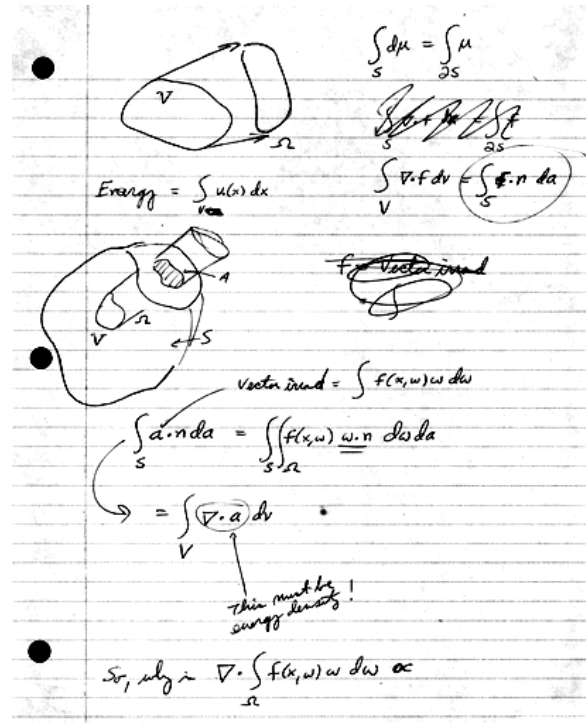 ∫_S dμ = ∫_∂S μ
V
Ω
∂S
Energy = ∫_V u(x) dx
∫_V ∇·f dv = ∫_S f·n da
A
V Ω
S
f = Vector irrad
Vector irrad = ∫ f(x,ω) ω dω
∫_S a·n da = ∫_S ∫_Ω f(x,ω) ω·n dω da
= ∫_V ∇·a dv
This must be
energy density!
So, why is ∇· ∫_Ω f(x,ω) ω dω ∝